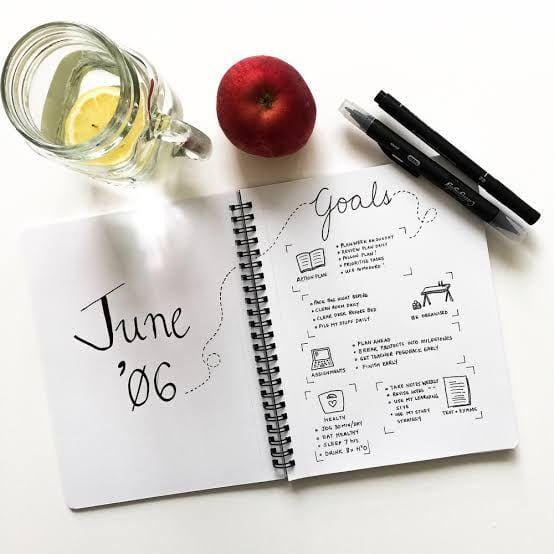 June
'06
Goals
• PLAN WEEK ON SUNDAY
• REVIEW PLAN DAILY
• FOLLOW PLAN!
• PRIORITISE TASKS
ACTION PLAN
• PACK BAG NIGHT BEFORE
• CLEAN ROOM DAILY
• CLEAR DESK BEFORE BED
• FILE MY STUFF DAILY
BE ORGANISED
• PLAN AHEAD
• BREAK PROJECTS INTO MILESTONES
• GET TEACHER FEEDBACK EARLY
• FINISH EARLY
ASSIGNMENTS
HEALTH
• JOG 30 MIN/DAY
• EAT HEALTHY
• SLEEP 7 hrs
• DRINK 8x H²O
• TAKE NOTES WEEKLY
• REVISE NOTES
• USE MY LEARNING
STYLE
• USE MY STUDY
STRATEGY
TEST + EXAMS